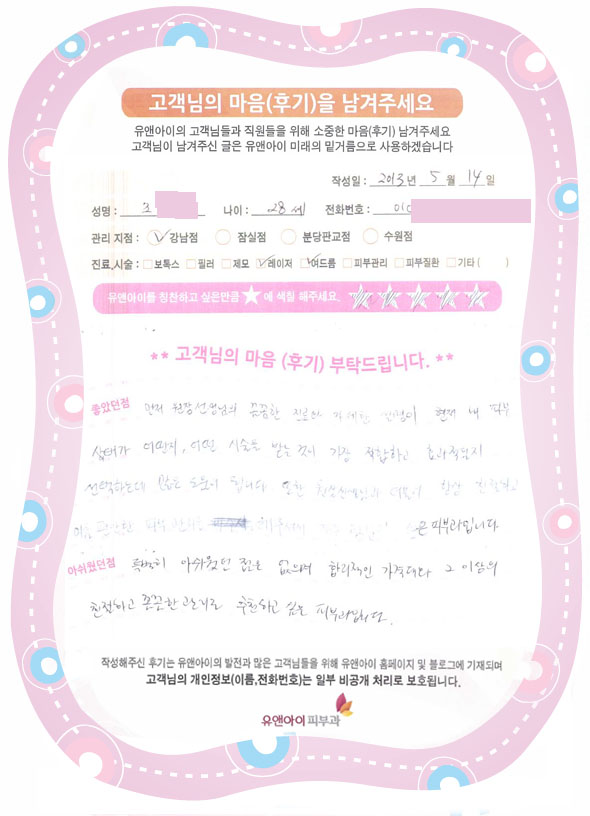 고객님의 마음(후기)을 남겨주세요
유앤아이의 고객님들과 직원들을 위해 소중한 마음(후기) 남겨주세요
고객님이 남겨주신 글은 유앤아이 미래의 밑거름으로 사용하겠습니다
작성일 : 2013년 5월 14일
성명 : 조 나이 : 28세 전화번호 : 010
관리 지점 : 강남점 잠실점 분당판교점 수원점
진료,시술 : 보톡스 필러 제모 레이저 여드름 피부관리 피부질환 기타 ( )
유앤아이를 칭찬하고 싶은만큼 ★에 색칠 해주세요.
** 고객님의 마음 (후기) 부탁드립니다. **
좋았던점 먼저 원장선생님의 꼼꼼한 진료와 자세한 설명이 현재 내 피부
상태가 어떤지, 어떤 시술을 받는 것이 가장 적합하고 효과적일지
선택하는데 많은 도움이 됩니다. 또한 항상 친절하고
피부 피부과입니다
아쉬웠던점 특별히 아쉬웠던 점은 없으며 합리적인 가격대와 그 이상의
친절하고 꼼꼼한 추천하고 싶은 피부과입니다.
작성해주신 후기는 유앤아이의 발전과 많은 고객님들을 위해 유앤아이 홈페이지 및 블로그에 기재되며
고객님의 개인정보(이름,전화번호)는 일부 비공개 처리로 보호됩니다.
유앤아이피부과